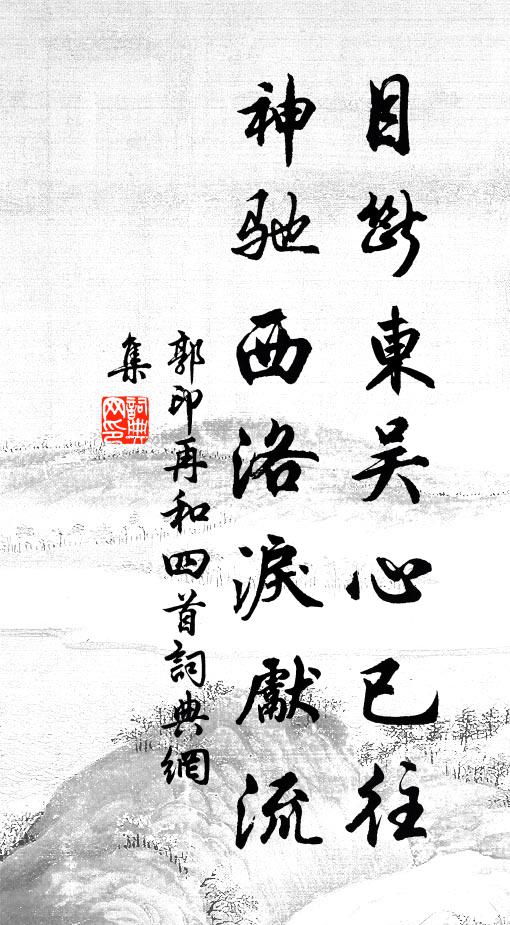 目斷東吳心已往
神馳西洛淚獻流
郭印再和四首詞典網
集
詞典
网印